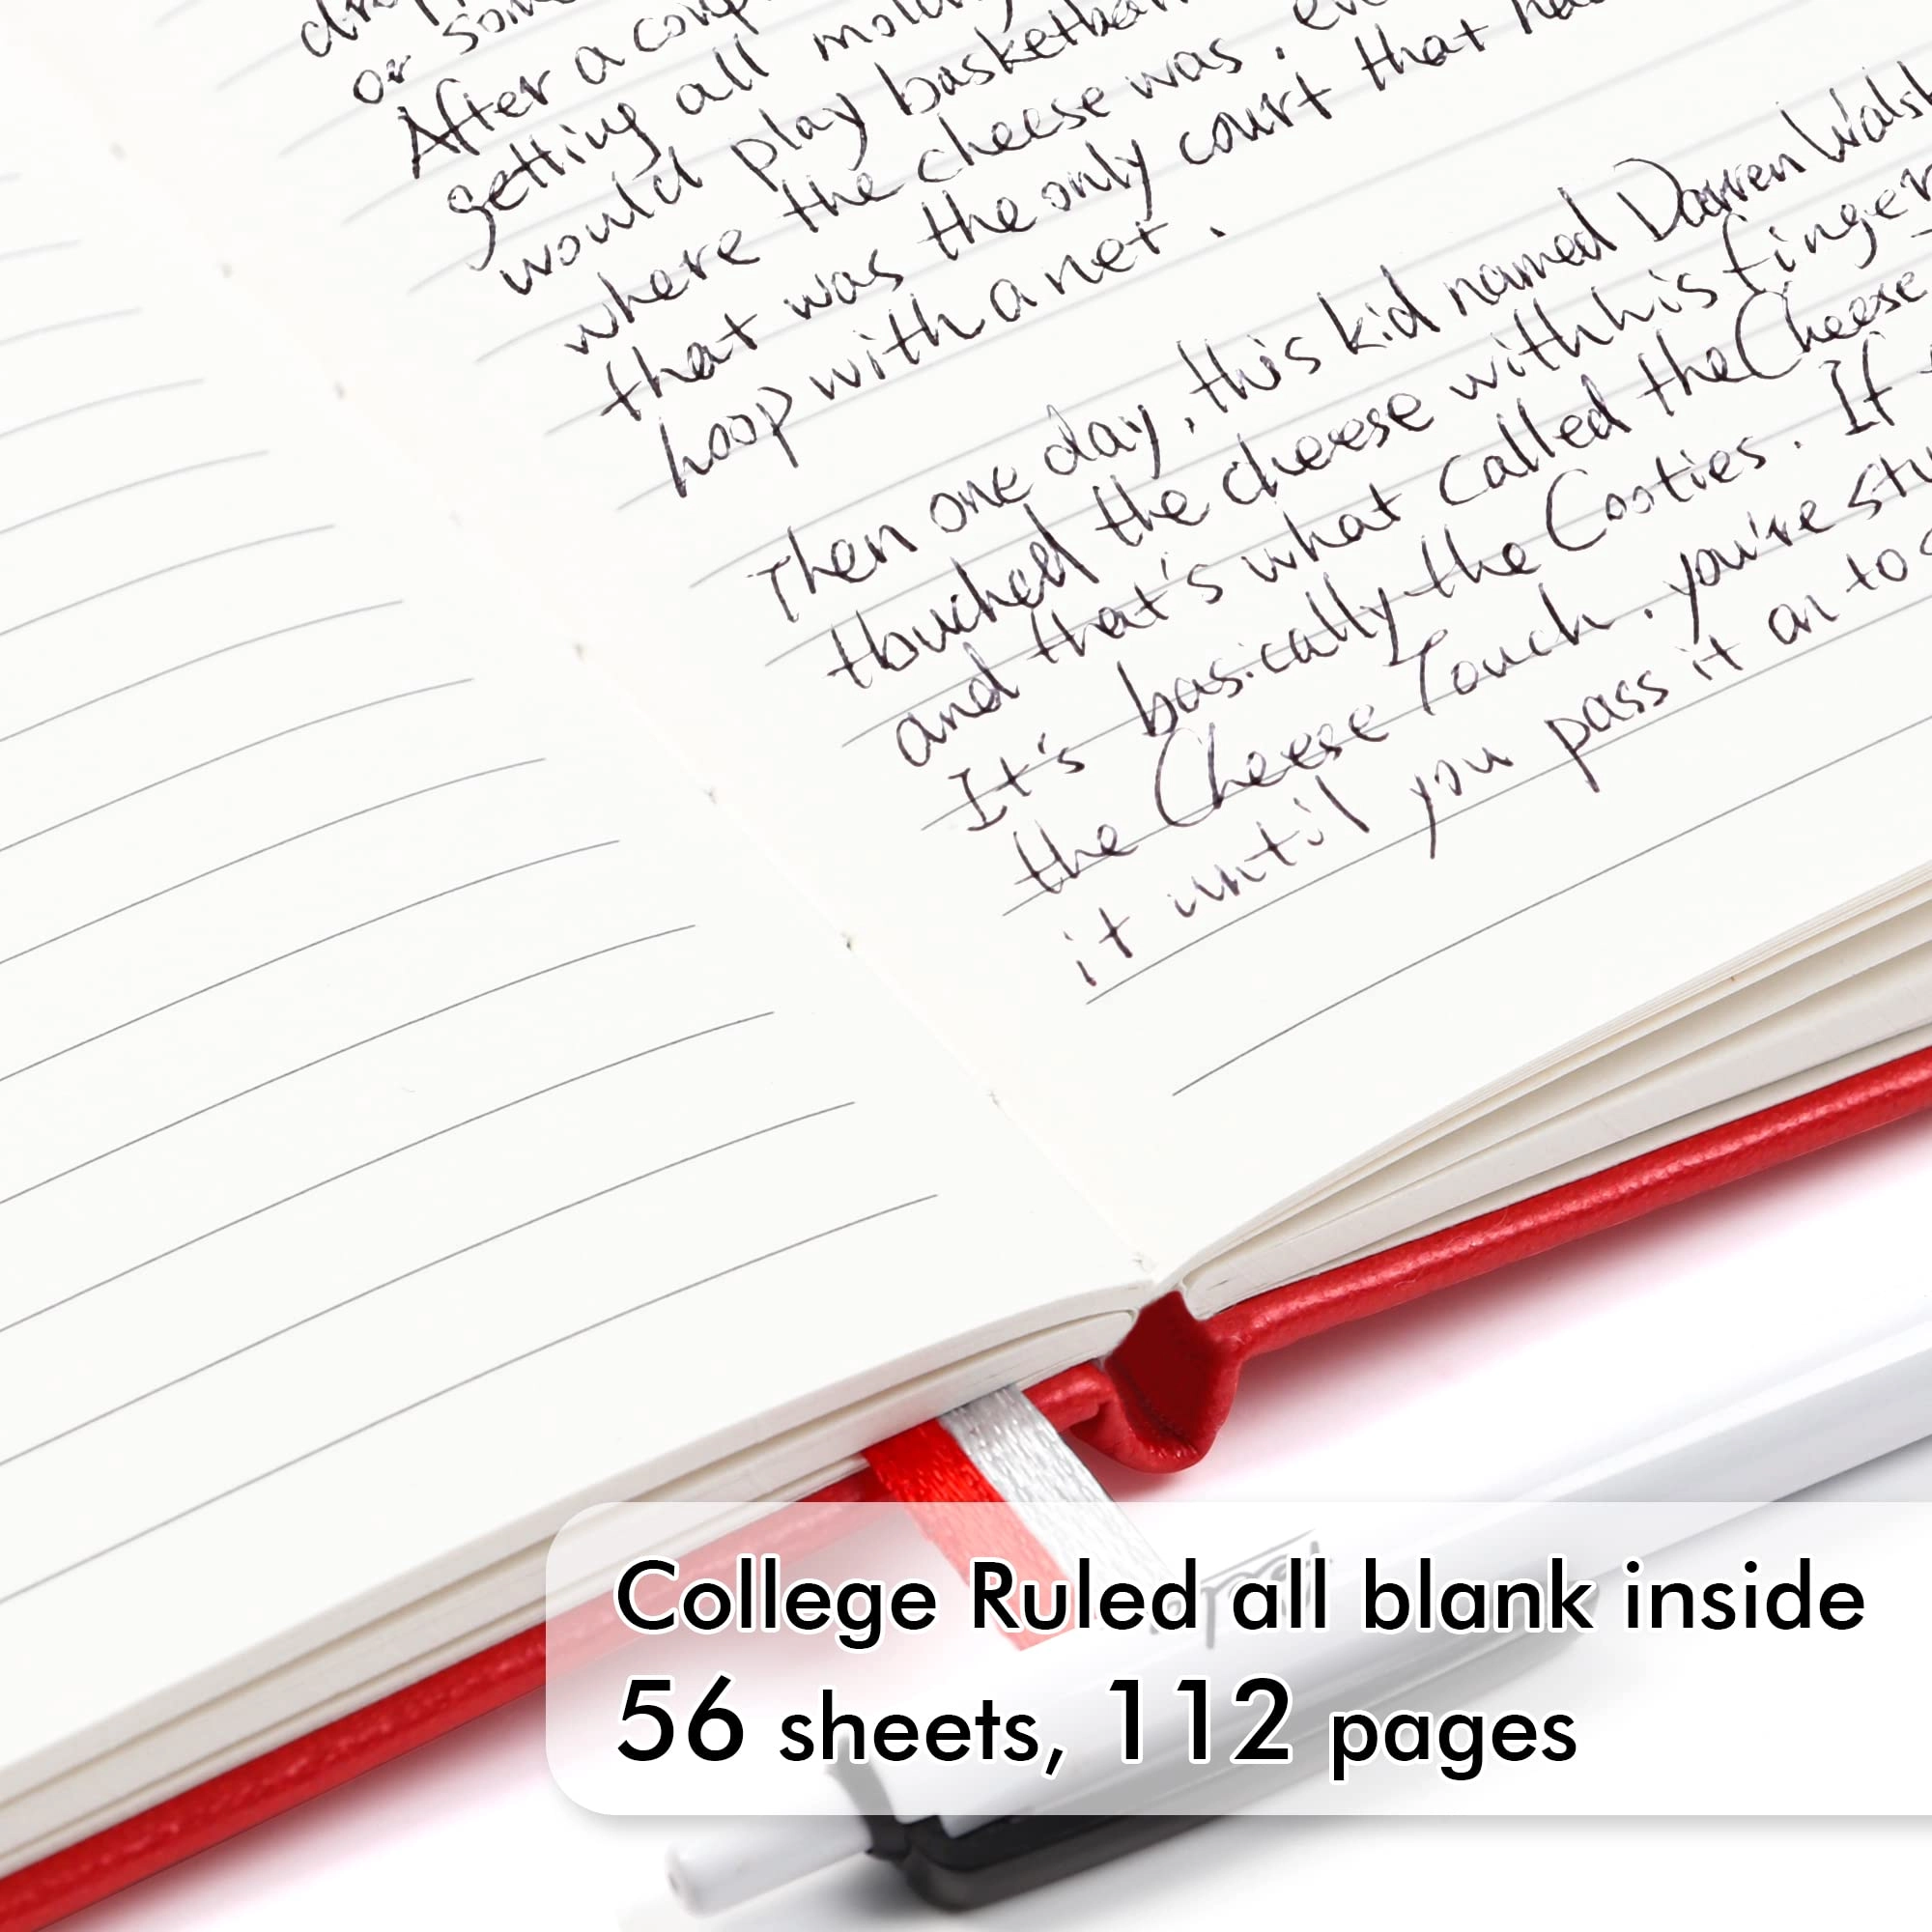 or som
After a coup
getting all
would play basketba
where the cheese was.
that was the only court that ha
hoop with a net.
Then one day, this kid named Darren Walsh
touched the cheese with his finger
and that's what called the Cheese
It's basically the Cooties. If
the Cheese Touch. you're stu
it until you pass it on to
College Ruled all blank inside
56 sheets, 112 pages